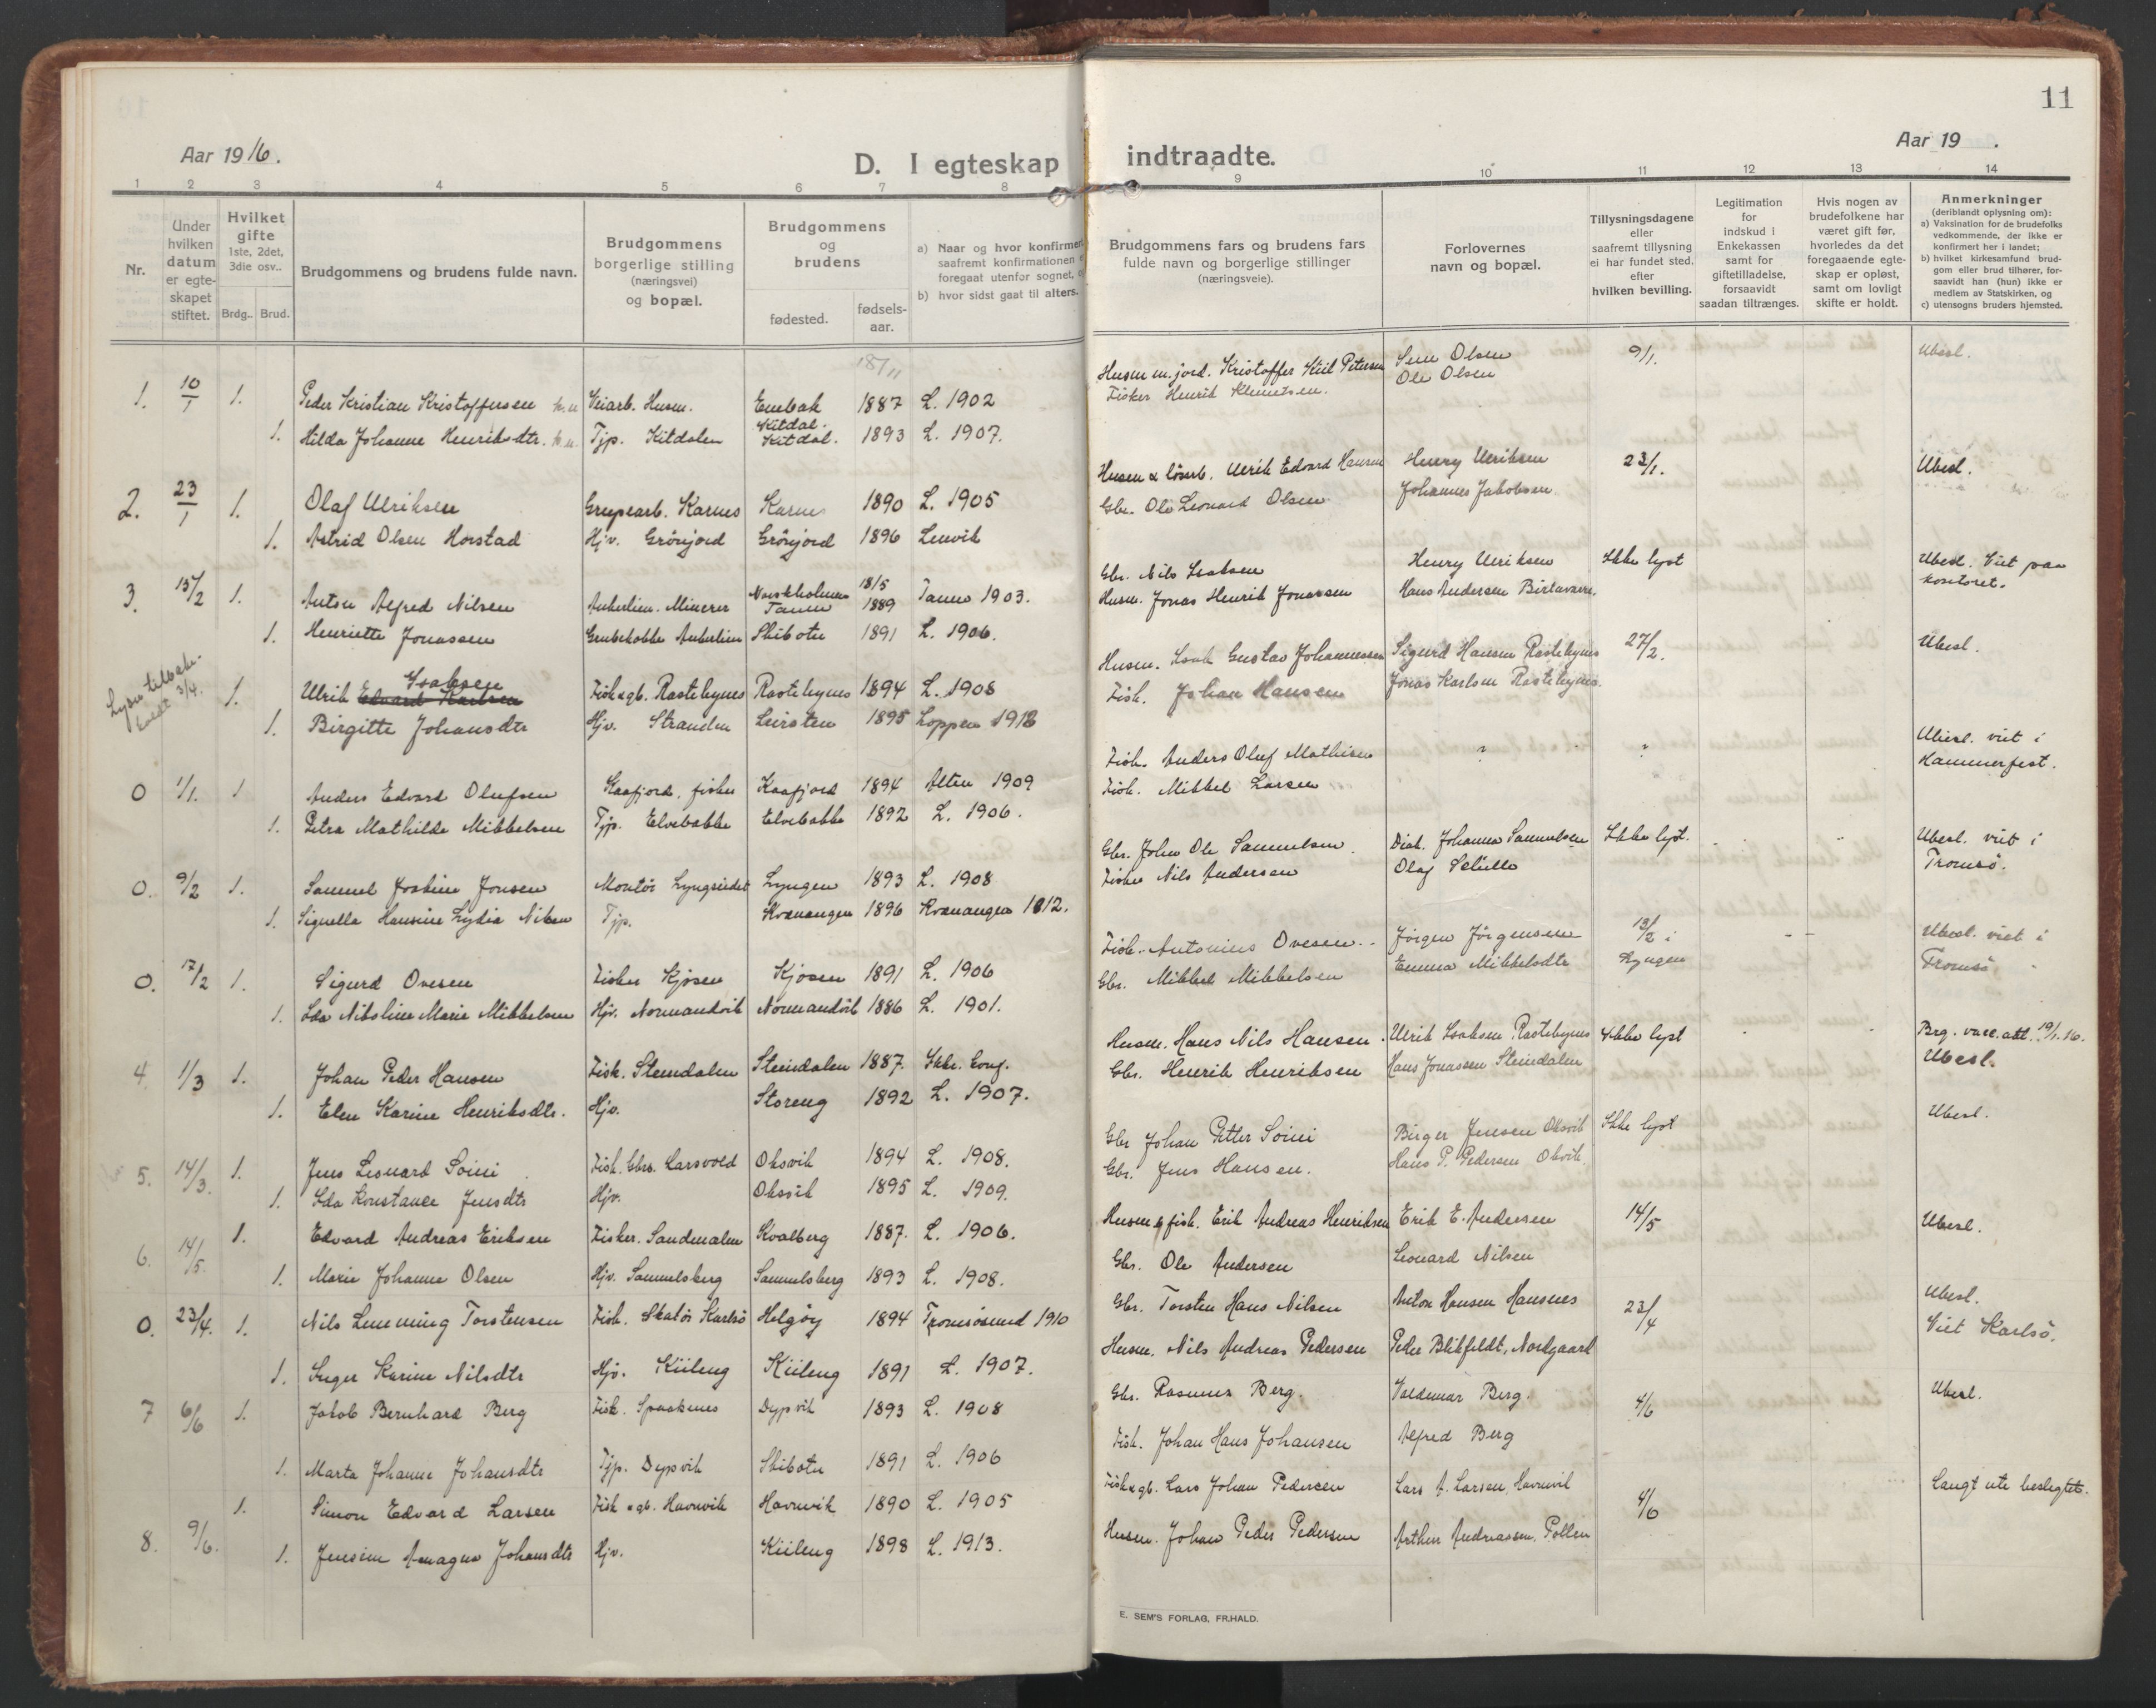 11
Aar 1916.
D. I egteskap indtraadte.
Aar 19 .
1 2 3 4 5 6 7 8 9 10 11 12 13 14
Nr.
Under hvilken datum er egteskapet stiftet.
Hvilket gifte 1ste, 2det, 3die osv..
Brdg.. Brud.
Brudgommens og brudens fulde navn.
Brudgommens borgerlige stilling (næringsvei) og bopæl.
Brudgommens og brudens
fødested. fødsels-aar.
a) Naar og hvor konfirmert
saafremt konfirmationen
foregaat utenfor sognet,
b) hvor sidst gaat til alters.
Brudgommens fars og brudens fars
fulde navn og borgerlige stillinger
(næringsveie).
Forlovernes
navn og bopæl.
Tillysningsdagene
eller
saafremt tillysning
ei har fundet sted.
efter
hvilken bevilling.
Legitimation
for
indskud i
Enkekassen
samt for
giftetilladelse,
forsaavidt
saadan tiltrænges.
Hvis nogen av
brudefolkene har
været gift før,
hvorledes da det
foregaaende egte-
skap er opløst,
samt om lovligt
skifte er holdt.
Anmerkninger
(deriblandt oplysning om):
a) Vaksination for de brudefolks
vedkommende, der ikke er
konfirmert her i landet;
b) hvilket kirkesamfund brud-
gom eller brud tilhører, for-
saavidt han (hun) ikke er
medlem av Statskirken, og
c) utensogns bruders hjemsted.
1. 10/1 1. Peder Kristian Kristoffersen Veiarb. Husm. 18/11 1887 L. 1902 Husm m. jord. Kristoffer Kiil Petersen Sem Olsen 9/1. Ubesl.
1. Hilda Johanne Henriksdtr. Tjp. Kitdalen Kitdal. Kitdal. 1893 L. 1907. Fisker Henrik Klemetsen. Ole Olsen
2. 23/1 1. Olaf Ulriksen Grupearb. Karnes Karnes 1890 L. 1905 Ulrik Edvard Hansen Henry Ulriksen 23/1. Ubesl.
1. Astrid Olsen Horstad Hjv. Grönjord Grönjord 1896 Lenvik Gbr. Ole Leonard Olsen Johannes Jakobsen.
3. 15/2 1. Anton Alfred Nilsen Ankerlien. Minerer Tanen 18/5 1889 Tanen 1903. Gbr. Nils Isaksen Henry Ulriksen Ikke lyst Ubesl. Viet paa kontoret.
1. Henriette Jonassen Ankerlien Skibotn 1891 L. 1906. Husm. Jonas Henrik Jonassen Hans Andersen Birtavarre.
Lysn. tilbakekaldt 3/4. 1. Ulrik Isaksen Fisk & gb. Rastebynes Rastebynes 1894 L. 1908 Husm. Isak Gustav Johannessen Sigurd Hansen Rastebynes 27/2. Ubesl.
1. Birgitte Johansdtr Hjv. Stranden Leirsten 1895 Loppen 1912 Fisk. Johan Hansen Jonas Karlsen Rastebynes.
0 1/1. 1 Anders Edvard Olufsen Kaafjord, fisker Kaafjord 1894 Alten 1909 Fisk. Anders Oluf Mathisen " " Ubesl. viet i Hammerfest.
1. Petra Mathilde Mikkelsen Tjp. Elvebakke Elvebakke 1892 L. 1906. Fisk. Mikkel Larsen
0. 9/2 1. Samuel Joakim Jonsen Montör Lyngseidet Lyngen 1893 L. 1908 Gbr. John Ole Samuelsen. Diak. Johanna Samuelsen Ikke lyst. Ubesl. viet i Tromsö.
1. Signella Hansine Lydia Nilsen Tjp. Kvænangen 1896 Kvænangen 1912. Fisker Nils Andersen Olaf
0. 17/2 1. Sigurd Ovesen Fisker Kjosen Kjosen 1891 L. 1906 Fisk. Antonius Ovesen Jörgen Jörgensen 13/2 i Lyngen Ubesl. viet i Tromsö
1. Ida Nikoline Marie Mikkelsen Hjv. Normandvik Normandvik 1886 L. 1901. Gbr. Mikkel Mikkelsen Emma Mikkelsdtr
4 1/3 1. Johan Peder Hansen Fisk. Steindalen Steindalen 1887. Ikke konf. Husm. Hans Nils Hansen Ulrik Isaksen Rastebynes Ikke lyst Brg. vacc. att. 19/1.16. Ubesl.
1. Elen Karine Henriksdtr. Hjv. Storeng 1892 L. 1907. Gbr. Henrik Henriksen Hans Jonassen Steindalen
5. 14/3. 1. Jens Leonard Soini Fisk. Gbr. Larsvold Oksvik 1894 L. 1908. Gbr Johan Petter Soini Birger Jensen Oksvik Ikke lyst Ubesl.
1. Ida Konstance Jensdtr Hjv. Oksvik 1895 L. 1909. Gbr. Jens Hansen. Hans P. Pedersen Oksvik.
6. 14/5. 1. Edvard Andreas Eriksen Fisker. Sandmalen Kvalberg 1887. L. 1906. Husm & fisk. Erik Andreas Henriksen Erik E. Andersen 14/5 Ubesl.
1. Marie Johanne Olsen Hjv. Samuelsberg Samuelsberg 1893 L. 1908. Gbr. Ole Andersen Leonard Nilsen
0. 23/4. 1. Nils Lemming Torstensen Fisk. Skatör Karlsö Helgöy 1894 Tromsösund 1910 Gbr. Torsten Hans Nilsen Anton Hansen Hansnes 23/4 Ubesl. Viet Karlsö.
1. Inger Karine Nilsdtr Hjv. Kiileng Kiileng 1891 L. 1907. Husm. Nils Andreas Pedersen Peder Blikfeldt, Nordgaard
7 6/6 1. Jakob Bernhard Berg Fisk. Spaaknes Dypvik 1893 L. 1908 Gbr. Rasmus Berg. Valdemar Berg. 4/6 Ubesl.
1. Marta Johanne Johansdtr Tjp. Dypvik Skibotn 1891 L. 1906 Fisk. Johan Hans Johansen Alfred Berg
8. 9/6. 1. Simon Edvard Larsen Fisk & gb. Havnvik Havnvik 1890 L. 1905 Fisk & gb. Lars Johan Pedersen Lars A. Larsen, Havnvik 4/6 Langt ute beslegtet.
1. Jensine Amagna Johansdtr Hjv. Kiileng 1898 L. 1913. Husm. Johan Peder Pedersen Arthur Andreassen, Pollen
E. SEM'S FORLAG, FR.HALD.